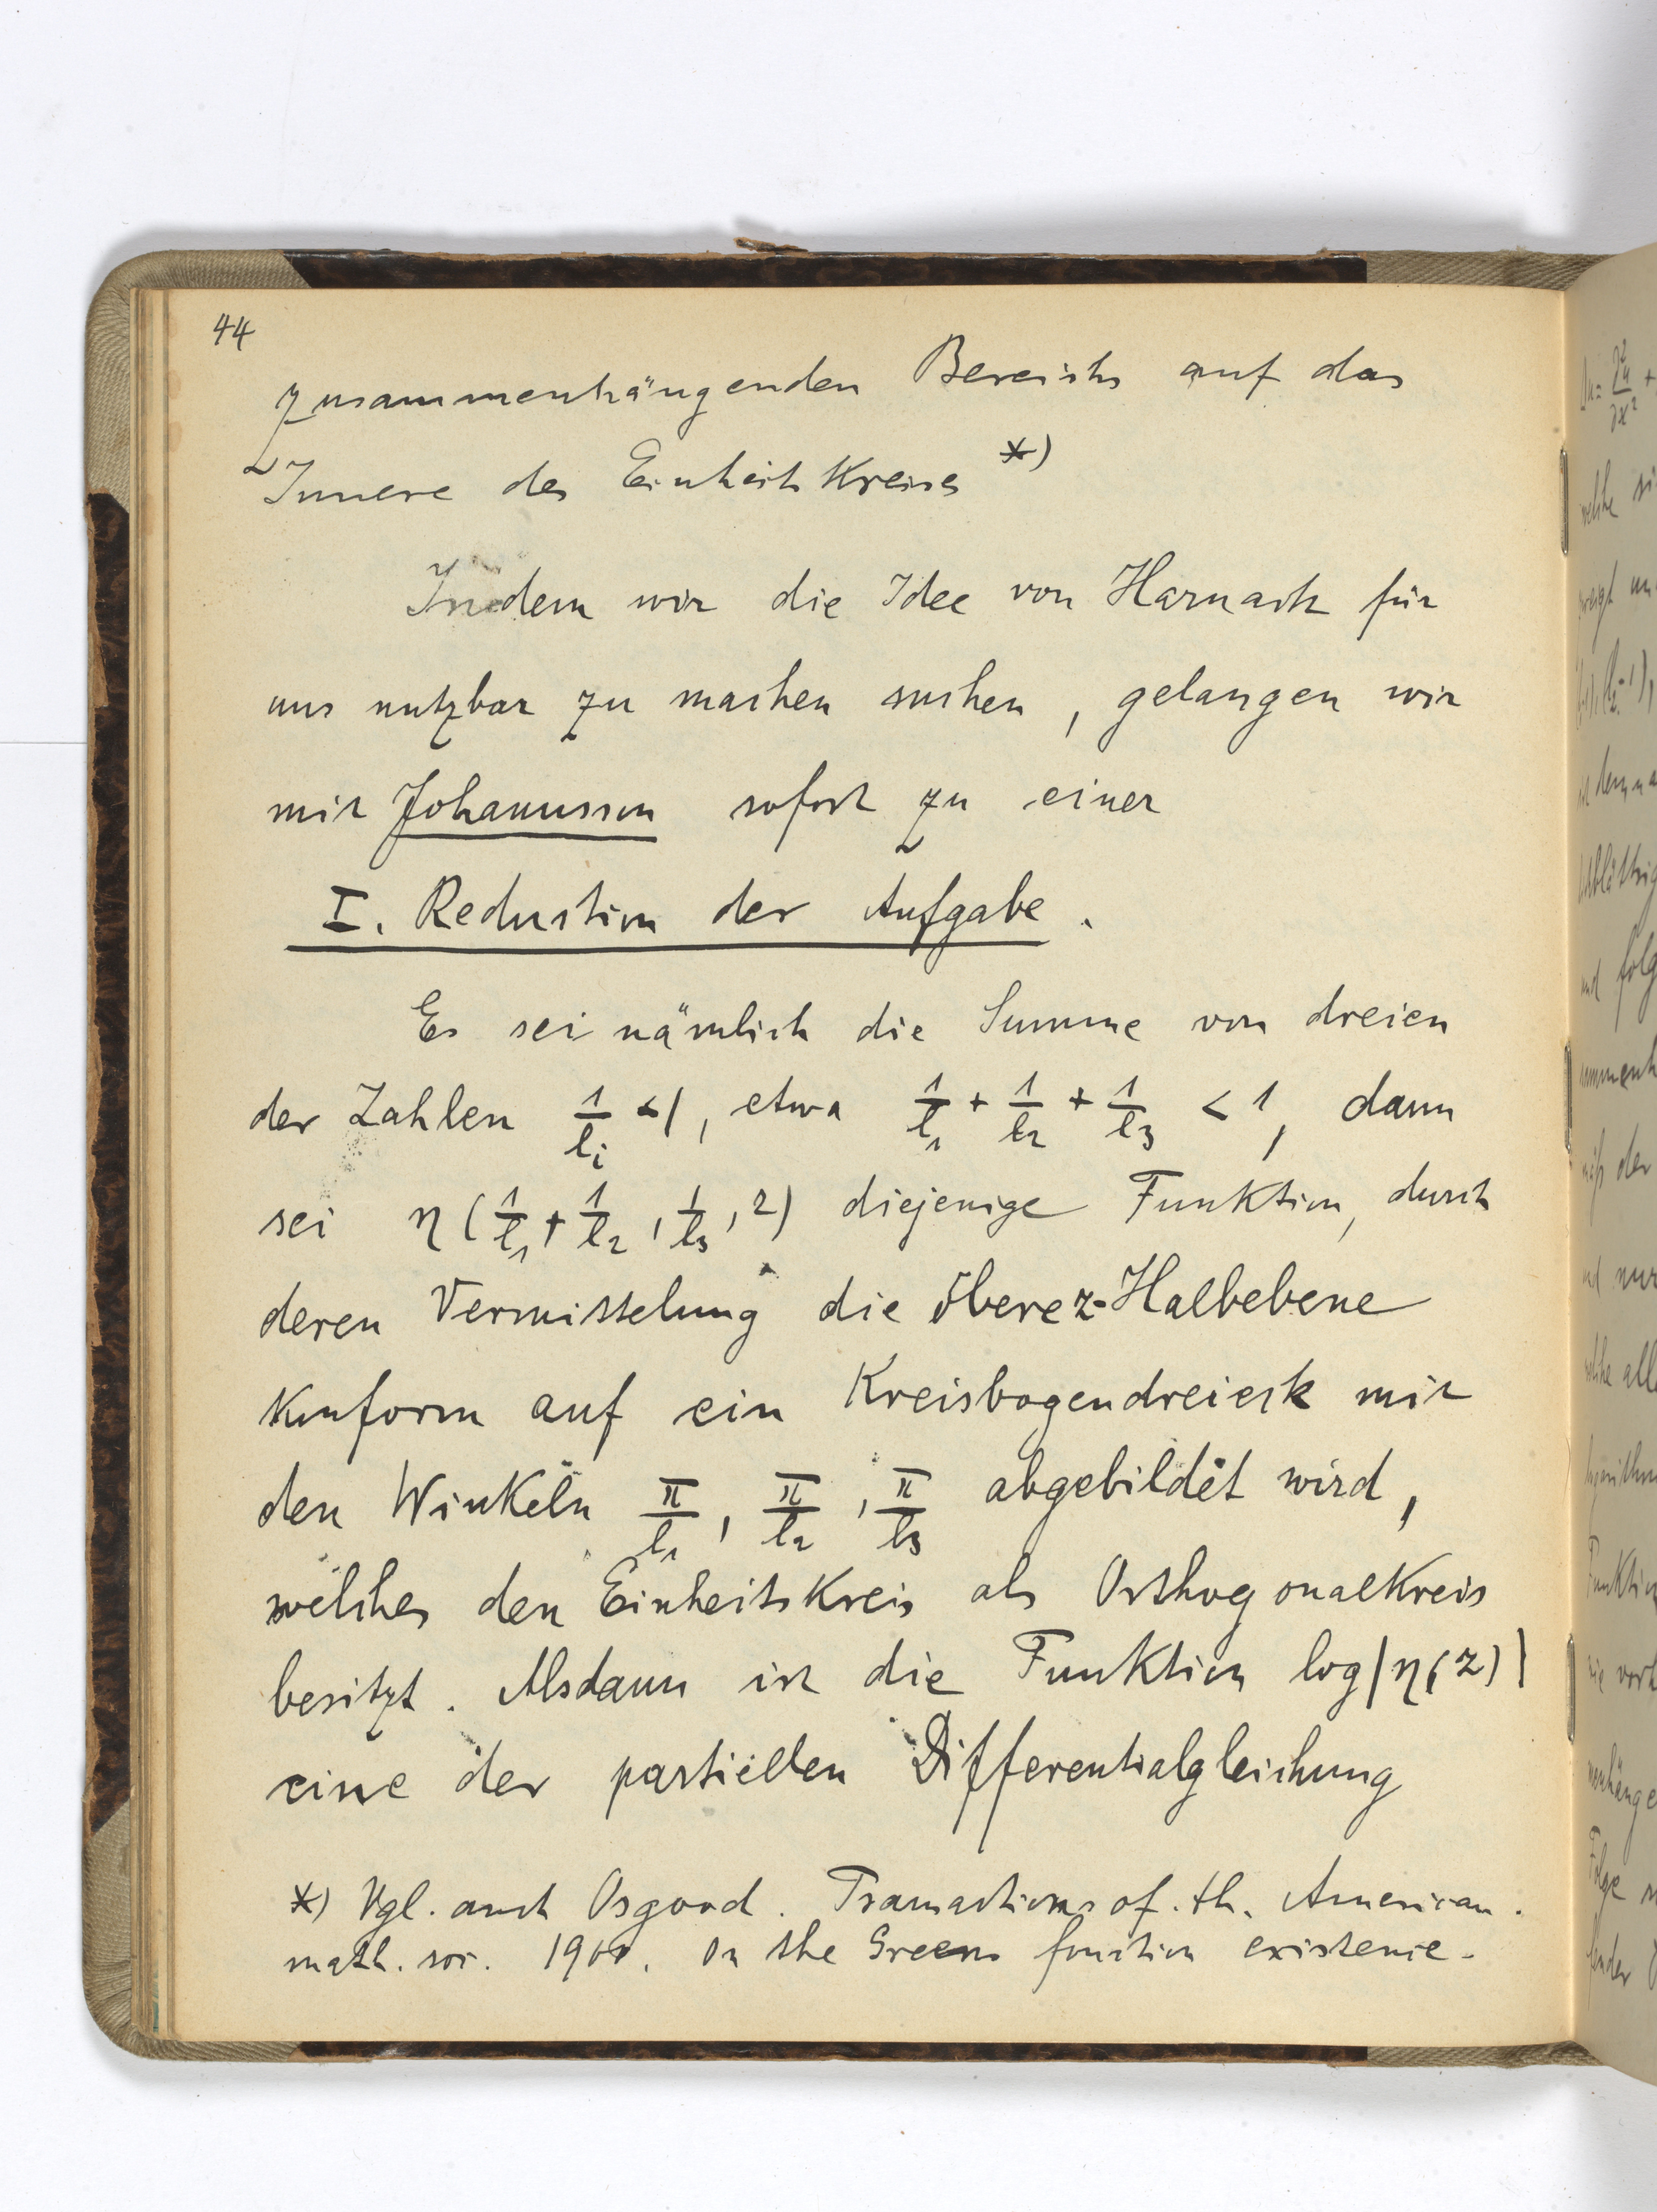 44
zusammenhängenden Bereichs auf das
Innere des Einheitskreises *)
Indem wir die Idee von Harnack für
uns nutzbar zu machen suchen, gelangen wir
mit Johansson sofort zu einer
I. Reduction der Aufgabe.
Es sei nämlich die Summe von dreien
der Zahlen 1/l_i < 1, etwa 1/l_1 + 1/l_2 + 1/l_3 < 1, dann
sei η(1/l_1 + 1/l_2, 1/l_3, z) diejenige Funktion, durch
deren Vermittelung die obere z-Halbebene
konform auf ein Kreisbogendreieck mit
den Winkeln π/l_1, π/l_2, π/l_3 abgebildet wird,
welches den Einheitskreis als Orthogonalkreis
besitzt. Alsdann ist die Funktion log|η(z)|
eine der partiellen Differentialgleichung
*) Vgl. auch Osgood. Transactions of. th. American.
math. soc. 1900. On the Greens fonction existence.